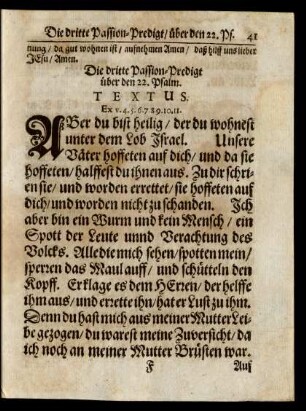 Die dritte Passion-Predigt / über den 22. Ps. 41
nung / da gut wohnen ist / aufnehmen Amen / daß hilff uns lieber
JEsu / Amen.
Die dritte Passion-Predigt
über den 22. Psalm.
TEXTUS.
Ex v. 4. 5. 6. 7. 8 9. 10. 11.
ABer du bist heilig / der du wohnest
unter dem Lob Israel. Unsere
Väter hoffeten auf dich / und da sie
hoffeten / halffest du ihnen aus. Zu dir schri-
en sie / und worden errettet / sie hoffeten auf
dich / und worden nicht zu schanden. Ich
aber bin ein Wurm und kein Mensch / ein
Spott der Leute unnd Verachtung des
Volcks. Alle die mich sehen / spotten mein /
sperren das Maul auff / und schütteln den
Kopff. Er klage es dem HErrn / der helffe
ihm aus / und errette ihn / hat er Lust zu ihm.
Denn du hast mich aus meiner Mutter Lei-
be gezogen / du warest meine Zuversicht / da
ich noch an meiner Mutter Brüsten war.
F Auß